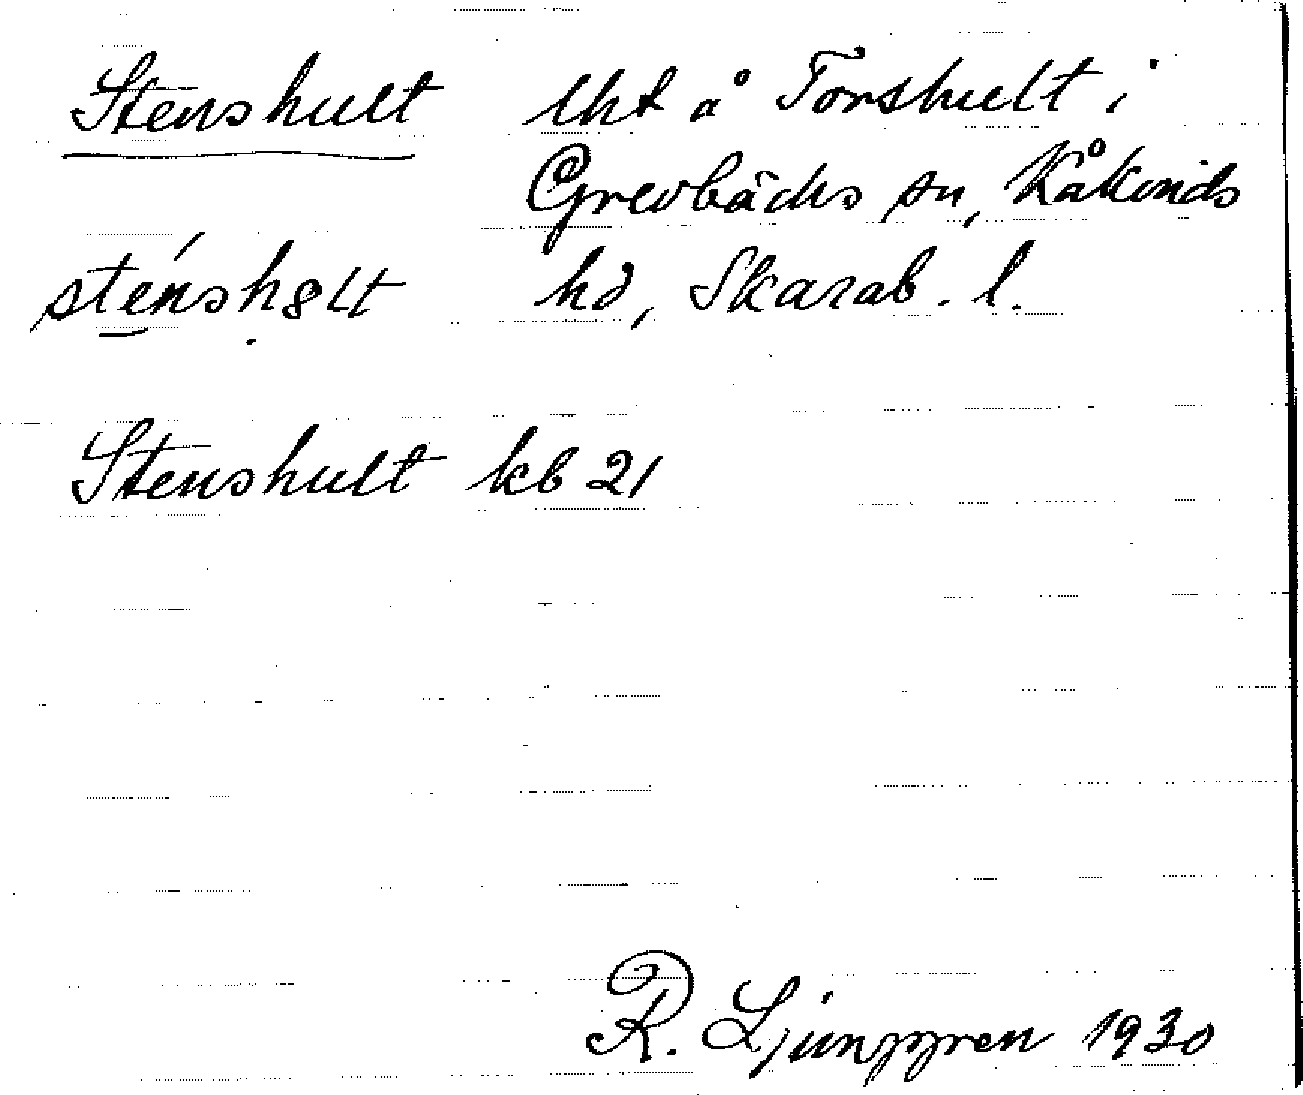 Stenshult lht å Torshult i
Grevbäcks sn, Kåkinds
sténshɵlt hd, Skarab. l.
Stenshult kb 21
R. Ljunggren 1930